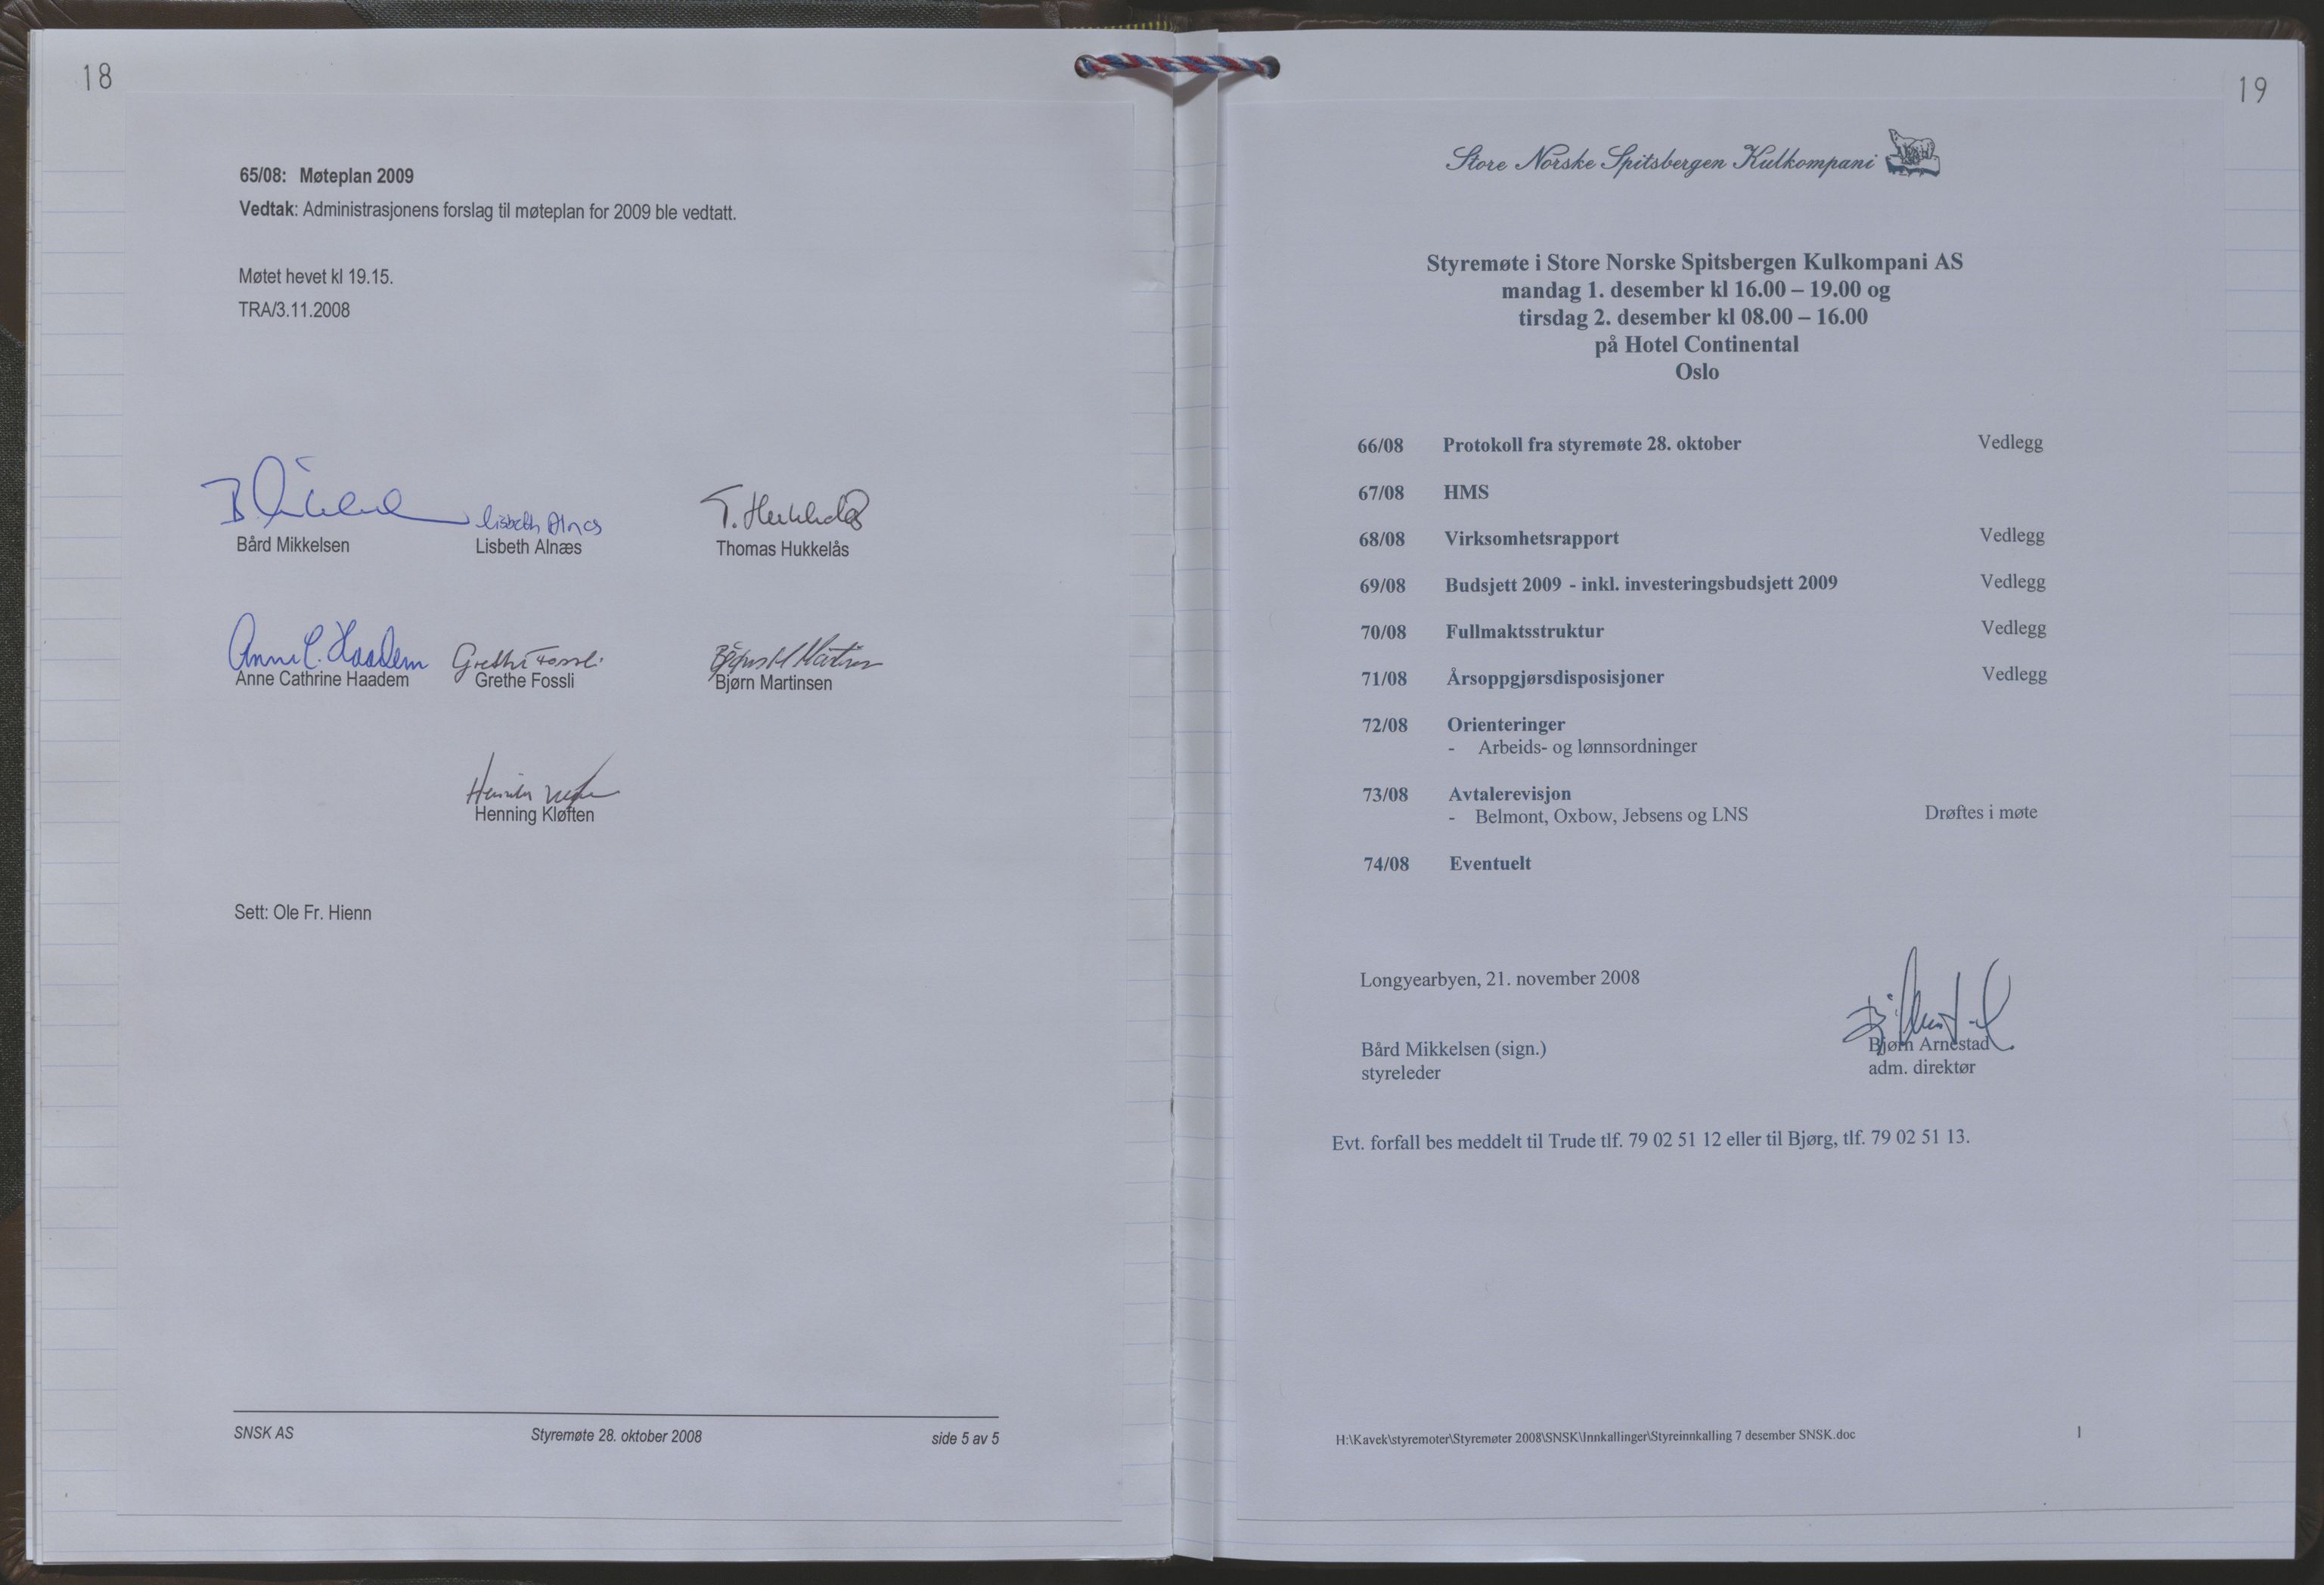 18
65/08: Møteplan 2009
Vedtak: Administrasjonens forslag til møteplan for 2009 ble vedtatt.
Møtet hevet kl 19.15.
TRA/3.11.2008
Lisbeth Alnæs
T. Hukkelås
Bård Mikkelsen
Lisbeth Alnæs
Thomas Hukkelås
Anne C. Haadem
Grethe Fossli
Anne Cathrine Haadem
Grethe Fossli
Bjørn Martinsen
Henning Kløften
Sett: Ole Fr. Hienn
SNSK AS
Styremøte 28. oktober 2008
side 5 av 5
19
Store Norske Spitsbergen Kulkompani
Styremøte i Store Norske Spitsbergen Kulkompani AS
mandag 1. desember kl 16.00 – 19.00 og
tirsdag 2. desember kl 08.00 – 16.00
på Hotel Continental
Oslo
66/08 Protokoll fra styremøte 28. oktober Vedlegg
67/08 HMS
68/08 Virksomhetsrapport Vedlegg
69/08 Budsjett 2009 - inkl. investeringsbudsjett 2009 Vedlegg
70/08 Fullmaktsstruktur Vedlegg
71/08 Årsoppgjørsdisposisjoner Vedlegg
72/08 Orienteringer
- Arbeids- og lønnsordninger
73/08 Avtalerevisjon
- Belmont, Oxbow, Jebsens og LNS Drøftes i møte
74/08 Eventuelt
Longyearbyen, 21. november 2008
Bård Mikkelsen (sign.)
styreleder
Bjørn Arnestad
adm. direktør
Evt. forfall bes meddelt til Trude tlf. 79 02 51 12 eller til Bjørg, tlf. 79 02 51 13.
H:\Kavek\styremoter\Styremøter 2008\SNSK\Innkallinger\Styreinnkalling 7 desember SNSK.doc
1